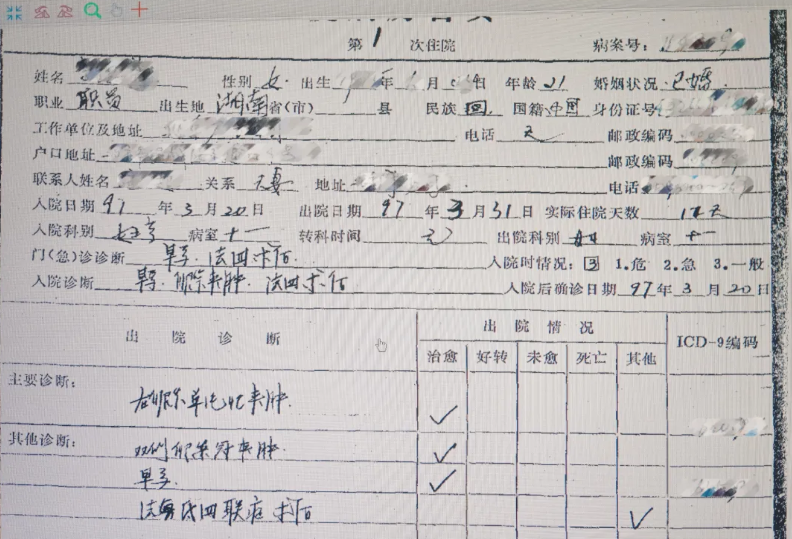 第 1 次住院 病案号:
姓名 性别 女 出生 年 月 日 年龄 21 婚姻状况 已婚
职业 职员 出生地 湖南 省(市) 县 民族 回 国籍 中国 身份证号
工作单位及地址 电话 无 邮政编码
户口地址 邮政编码
联系人姓名 关系 夫妻 地址 电话
入院日期 97 年 3 月 20 日 出院日期 97 年 3 月 31 日 实际住院天数 天
入院科别 病室 十一 转科时间 出院科别 病室 十一
门(急)诊诊断 早孕. 法四术后 入院时情况: 3 1.危 2.急 3.一般
入院诊断 早孕. 卵巢囊肿. 法四术后 入院后确诊日期 97 年 3 月 20 日
出 院 诊 断 出 院 情 况 ICD-9编码
治愈 好转 未愈 死亡 其他
主要诊断:
右卵巢单纯性囊肿. ✓
其他诊断: 双侧卵巢冠囊肿. ✓
早孕 ✓
法鲁氏四联症术后 ✓